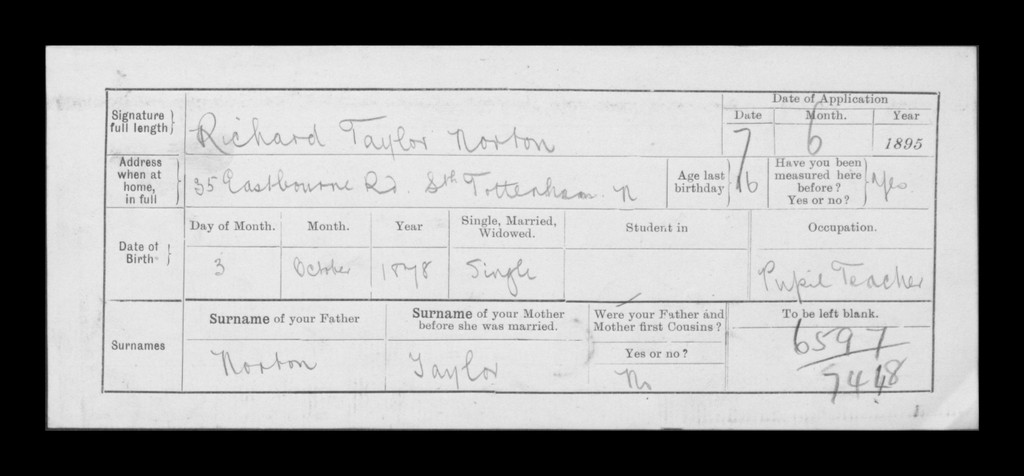 Date of Application
Signature full length
Richard Taylor Norton
Date Month. Year
7 6 1895
Address when at home, in full
35 Eastbourne Rd. Sth Tottenham. N
Age last birthday
16
Have you been measured here before? Yes or no?
Yes
Date of Birth
Day of Month. Month. Year Single, Married, Widowed. Student in Occupation.
3 October 1878 Single Pupil Teacher
Surnames
Surname of your Father Surname of your Mother before she was married. Were your Father and Mother first Cousins? To be left blank.
Yes or no?
Norton Taylor No
6597
7448
1